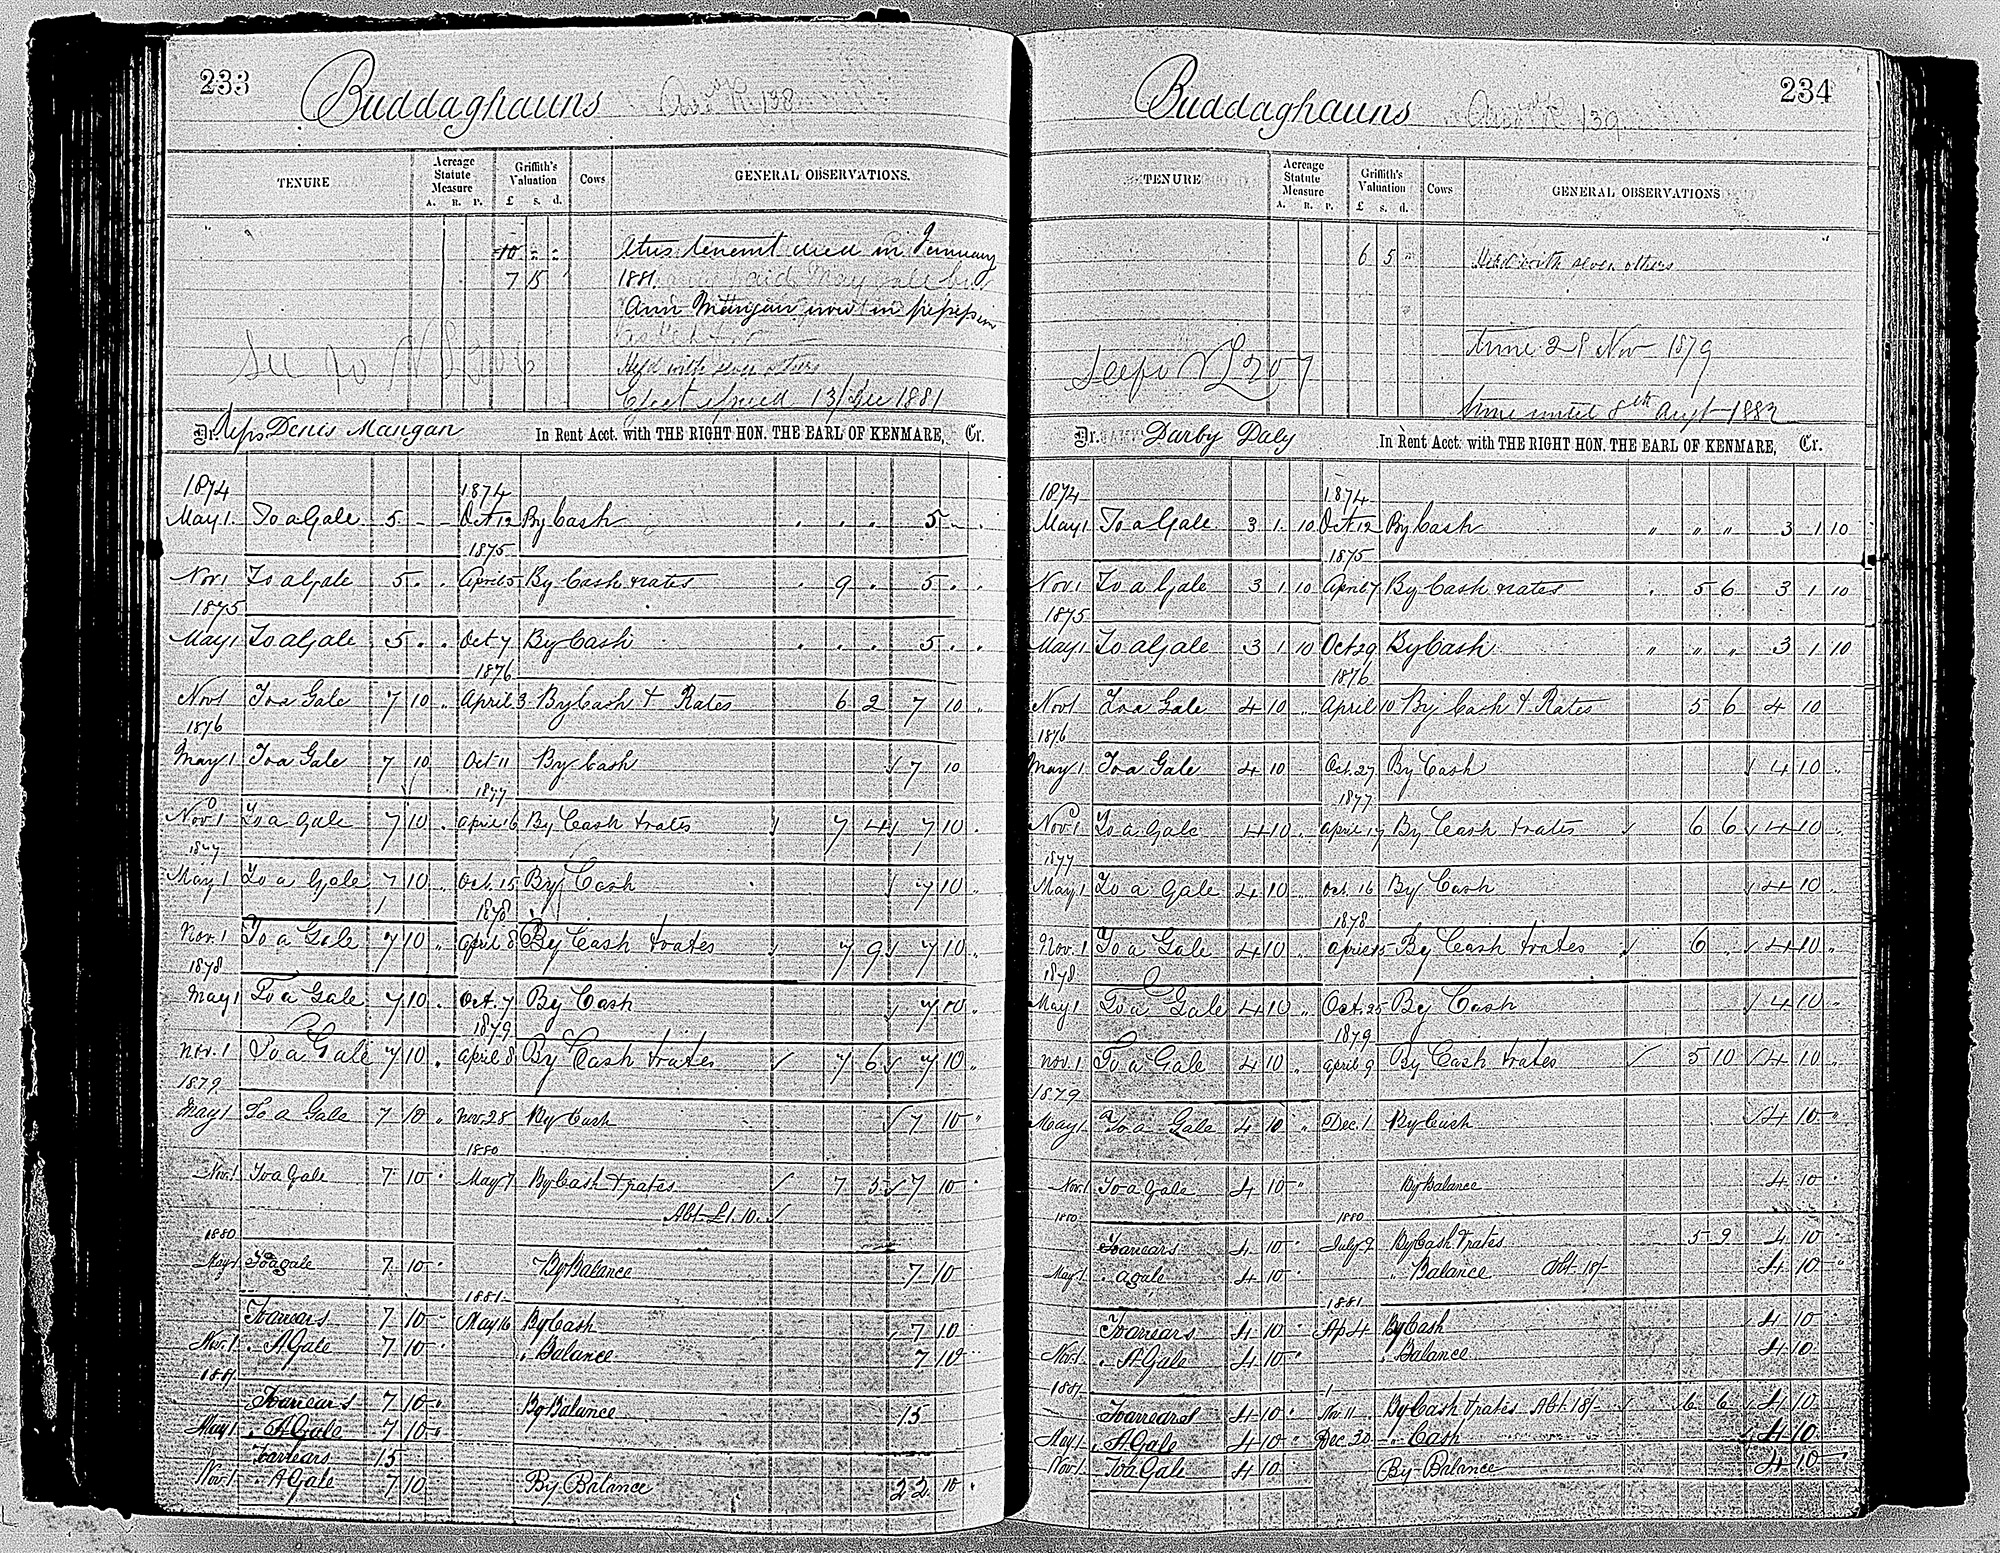 233
Buddaghauns
138
TENURE
Acreage Statute Measure
A. R. P.
Griffith's Valuation
£ s. d.
Cows
GENERAL OBSERVATIONS.
10 " "
7 15 "
This tenant died in January
1881. paid May gale
Ann Mangan now in
Held with seven others
Eject 13/ Dec 1881
See No 206
Dr. Reps Denis Mangan In Rent Acct. with THE RIGHT HON. THE EARL OF KENMARE, Cr.
1874 1874
May 1. To a Gale 5 - - Oct 12 By Cash . . . 5 - .
1875
Nov 1 To a Gale 5 . . April 5 By Cash & rates . 9 . 5 . .
1875
May 1 To a Gale 5 . . Oct 7 By Cash . . . 5 . .
1876
Nov 1 To a Gale 7 10 " April 3 By Cash & Rates 6 2 7 10 "
1876
May 1 To a Gale 7 10 Oct 11 By Cash √ 7 10
1877
Nov. 1 To a Gale 7 10 . April 16 By Cash & rates √ 7 4 √ 7 10 .
1877
May 1 To a Gale 7 10 " Oct. 15 By Cash √ 7 10 "
1878
Nov. 1 To a Gale 7 10 " April 8 By Cash & rates √ 7 9 √ 7 10 "
1878
May 1 To a Gale 7 10 " Oct. 7 By Cash √ 7 10 "
1879
Nov. 1 To a Gale 7 10 " April 8 By Cash & rates √ 7 6 √ 7 10 "
1879
May 1 To a Gale 7 10 " Nov. 28 By Cash √ 7 10 "
1880
Nov. 1 To a gale 7 10 " May 7 By Cash & rates √ 7 5 √ 7 10 "
Abt. £1.10. √
1880
May 1 To a gale 7 10 " By Balance 7 10
1881
To arrears 7 10 " May 16 By Cash 7 10
Nov. 1 " A Gale 7 10 " " Balance 7 10
1881
To arrears 7 10 " By Balance 15
May 1 " A Gale 7 10 "
To arrears 15
Nov. 1 " A Gale 7 10 By Balance 22 10 "
234
Buddaghauns
139
TENURE
Acreage Statute Measure
A. R. P.
Griffith's Valuation
£ s. d.
Cows
GENERAL OBSERVATIONS
6 5 "
Held with seven others
time 28 Nov 1879
See fo 207
time until 8th Augt 1882
Dr. Darby Daly In Rent Acct. with THE RIGHT HON. THE EARL OF KENMARE, Cr.
1874 1874
May 1 To a Gale 3 1 10 Oct 12 By Cash " " " 3 1 10
1875
Nov 1 To a Gale 3 1 10 April 7 By Cash & rates . 5 6 3 1 10
1875
May 1 To a Gale 3 1 10 Oct 29 By Cash " " " 3 1 10
1876
Nov 1 To a Gale 4 10 " April 10 By Cash & Rates 5 6 4 10
1876
May 1 To a Gale 4 10 Oct. 27 By Cash √ 4 10 "
1877
Nov. 1 To a Gale 4 10 " April 17 By Cash & rates √ 6 6 √ 4 10 "
1877
May 1 To a Gale 4 10 " Oct. 16 By Cash √ 4 10 "
1878
Nov. 1 To a Gale 4 10 " April 15 By Cash & rates √ 6 " √ 4 10 "
1878
May 1 To a Gale 4 10 " Oct. 25 By Cash √ 4 10 "
1879
Nov. 1 To a Gale 4 10 " April 9 By Cash & rates √ 5 10 √ 4 10 "
1879
May 1 To a Gale 4 10 " Dec. 1 By Cash √ 4 10 "
Nov. 1 To a gale 4 10 " By Balance 4 10 "
1880 1880
To arrears 4 10 " July 2 By Cash & rates 5 9 4 10 "
May 1 " a gale 4 10 " " Balance Abt. 18/- 4 10 "
1881
To arrears 4 10 " Ap 4 By Cash 4 10
Nov. 1 " A Gale 4 10 " " Balance 4 10
1881
To arrears 4 10 " Nov. 11 By Cash & rates Abt. 18/- √ 6 6 √ 4 10
May 1 " A Gale 4 10 " Dec. 30 " Cash √ 4 10
Nov. 1 To a Gale 4 10 By Balance 4 10 "